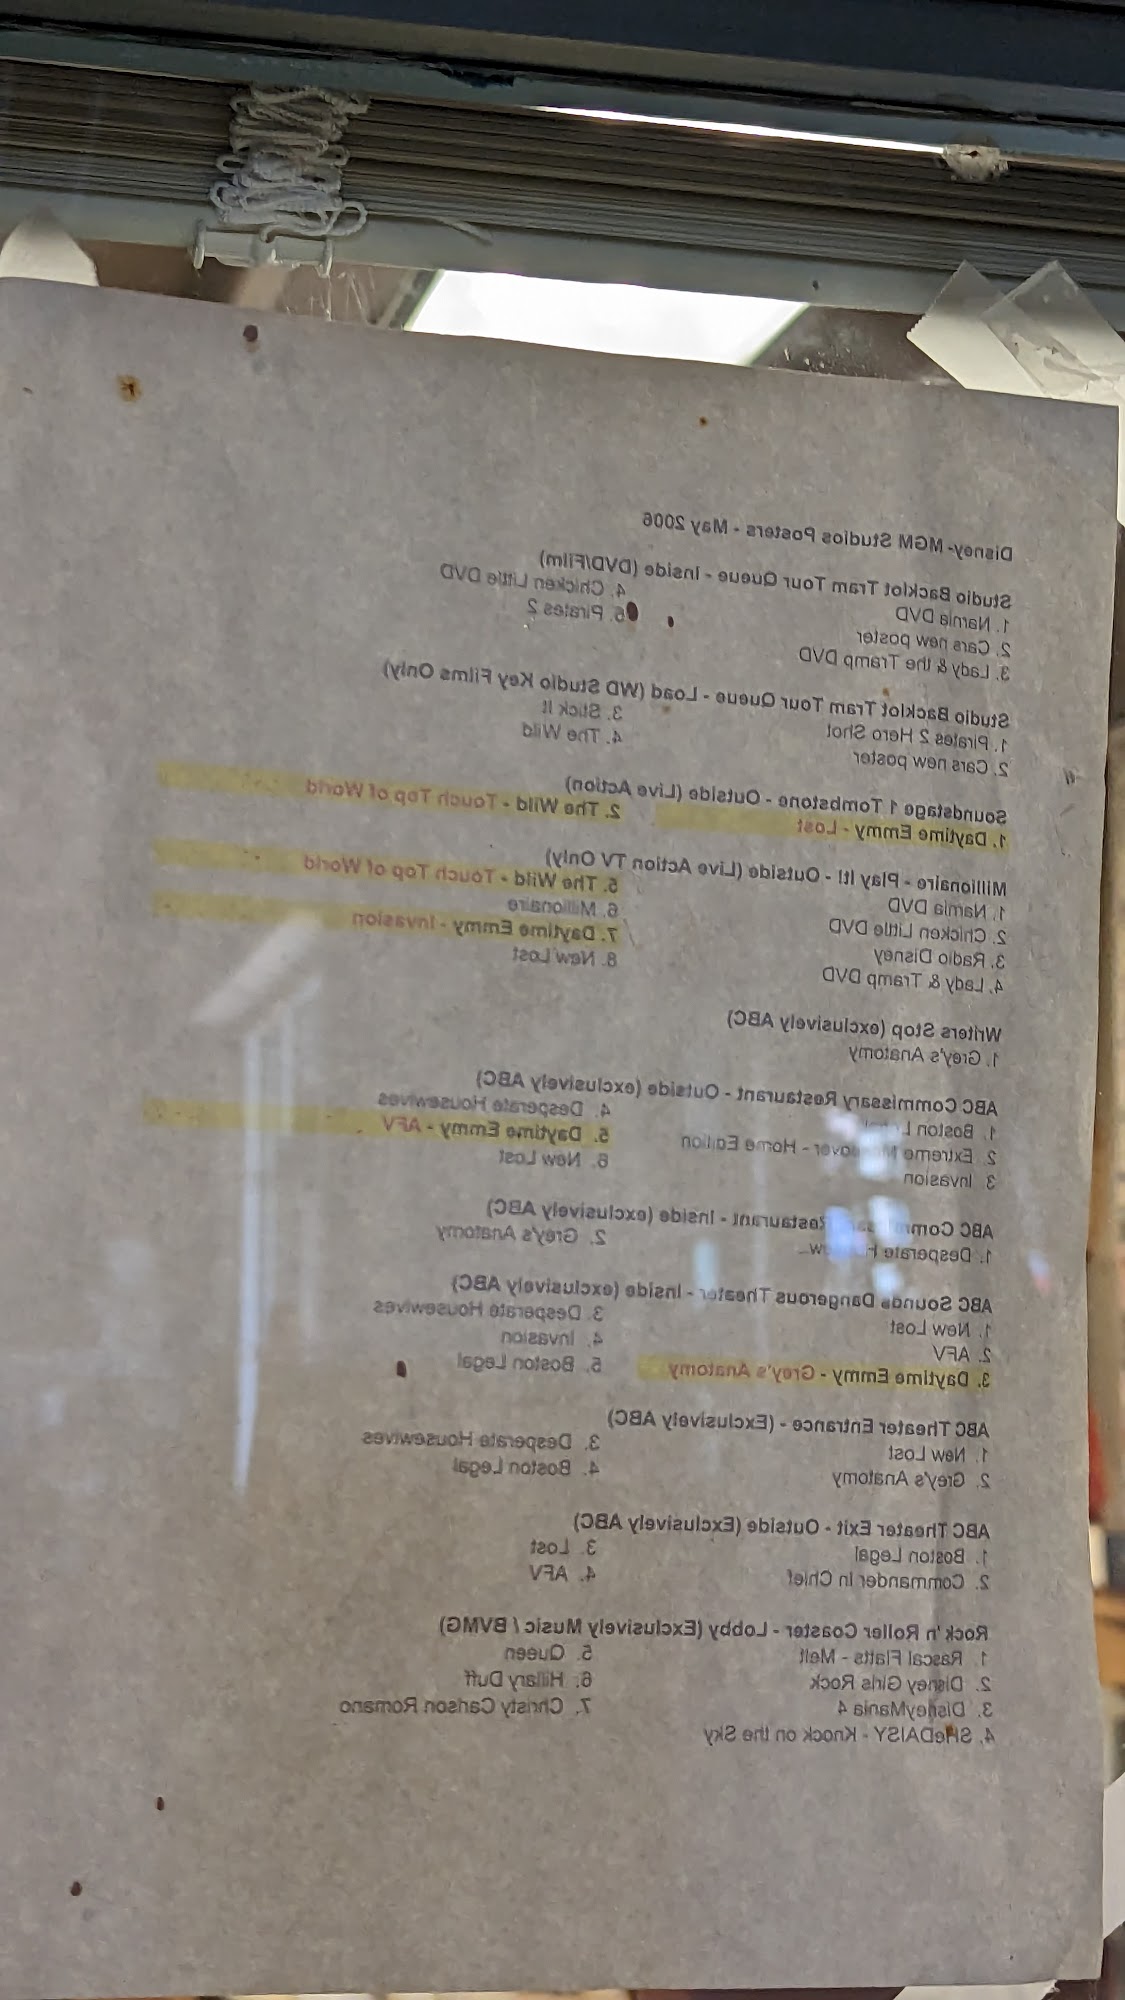 Disney-MGM Studios Posters - May 2006
Studio Backlot Tram Tour Queue - Inside (DVD/Film)
1. Narnia DVD
2. Cars new poster
3. Lady & the Tramp DVD
4. Chicken Little DVD
5. Pirates 2
Studio Backlot Tram Tour Queue - Load (WD Studio Key Films Only)
1. Pirates 2 Hero Shot
2. Cars new poster
3. Stick It
4. The Wild
Soundstage 1 Tombstone - Outside (Live Action)
1. Daytime Emmy - Lost
2. The Wild - Touch Top of World
Millionaire - Play It! - Outside (Live Action TV Only)
1. Narnia DVD
2. Chicken Little DVD
3. Radio Disney
4. Lady & Tramp DVD
5. The Wild - Touch Top of World
6. Millionaire
7. Daytime Emmy - Invasion
8. New Lost
Writers Stop (exclusively ABC)
1. Grey's Anatomy
ABC Commissary Restaurant - Outside (exclusively ABC)
1. Boston
2. Extreme Makeover - Home Edition
3 Invasion
4. Desperate Housewives
5. Daytime Emmy - AFV
6. New Lost
ABC Commissary Restaurant - Inside (exclusively ABC)
1. Desperate
2. Grey's Anatomy
ABC Sounds Dangerous Theater - Inside (exclusively ABC)
1. New Lost
2. AFV
3. Daytime Emmy - Grey's Anatomy
3. Desperate Housewives
4. Invasion
5. Boston Legal
ABC Theater Entrance - (Exclusively ABC)
1. New Lost
2. Grey's Anatomy
3. Desperate Housewives
4. Boston Legal
ABC Theater Exit - Outside (Exclusively ABC)
1. Boston Legal
2. Commander In Chief
3. Lost
4. AFV
Rock 'n Roller Coaster - Lobby (Exclusively Music / BVMG)
1. Rascal Flatts - Melt
2. Disney Girls Rock
3. DisneyMania 4
4. SHeDAISY - Knock on the Sky
5. Queen
6. Hillary Duff
7. Christy Carlson Romano